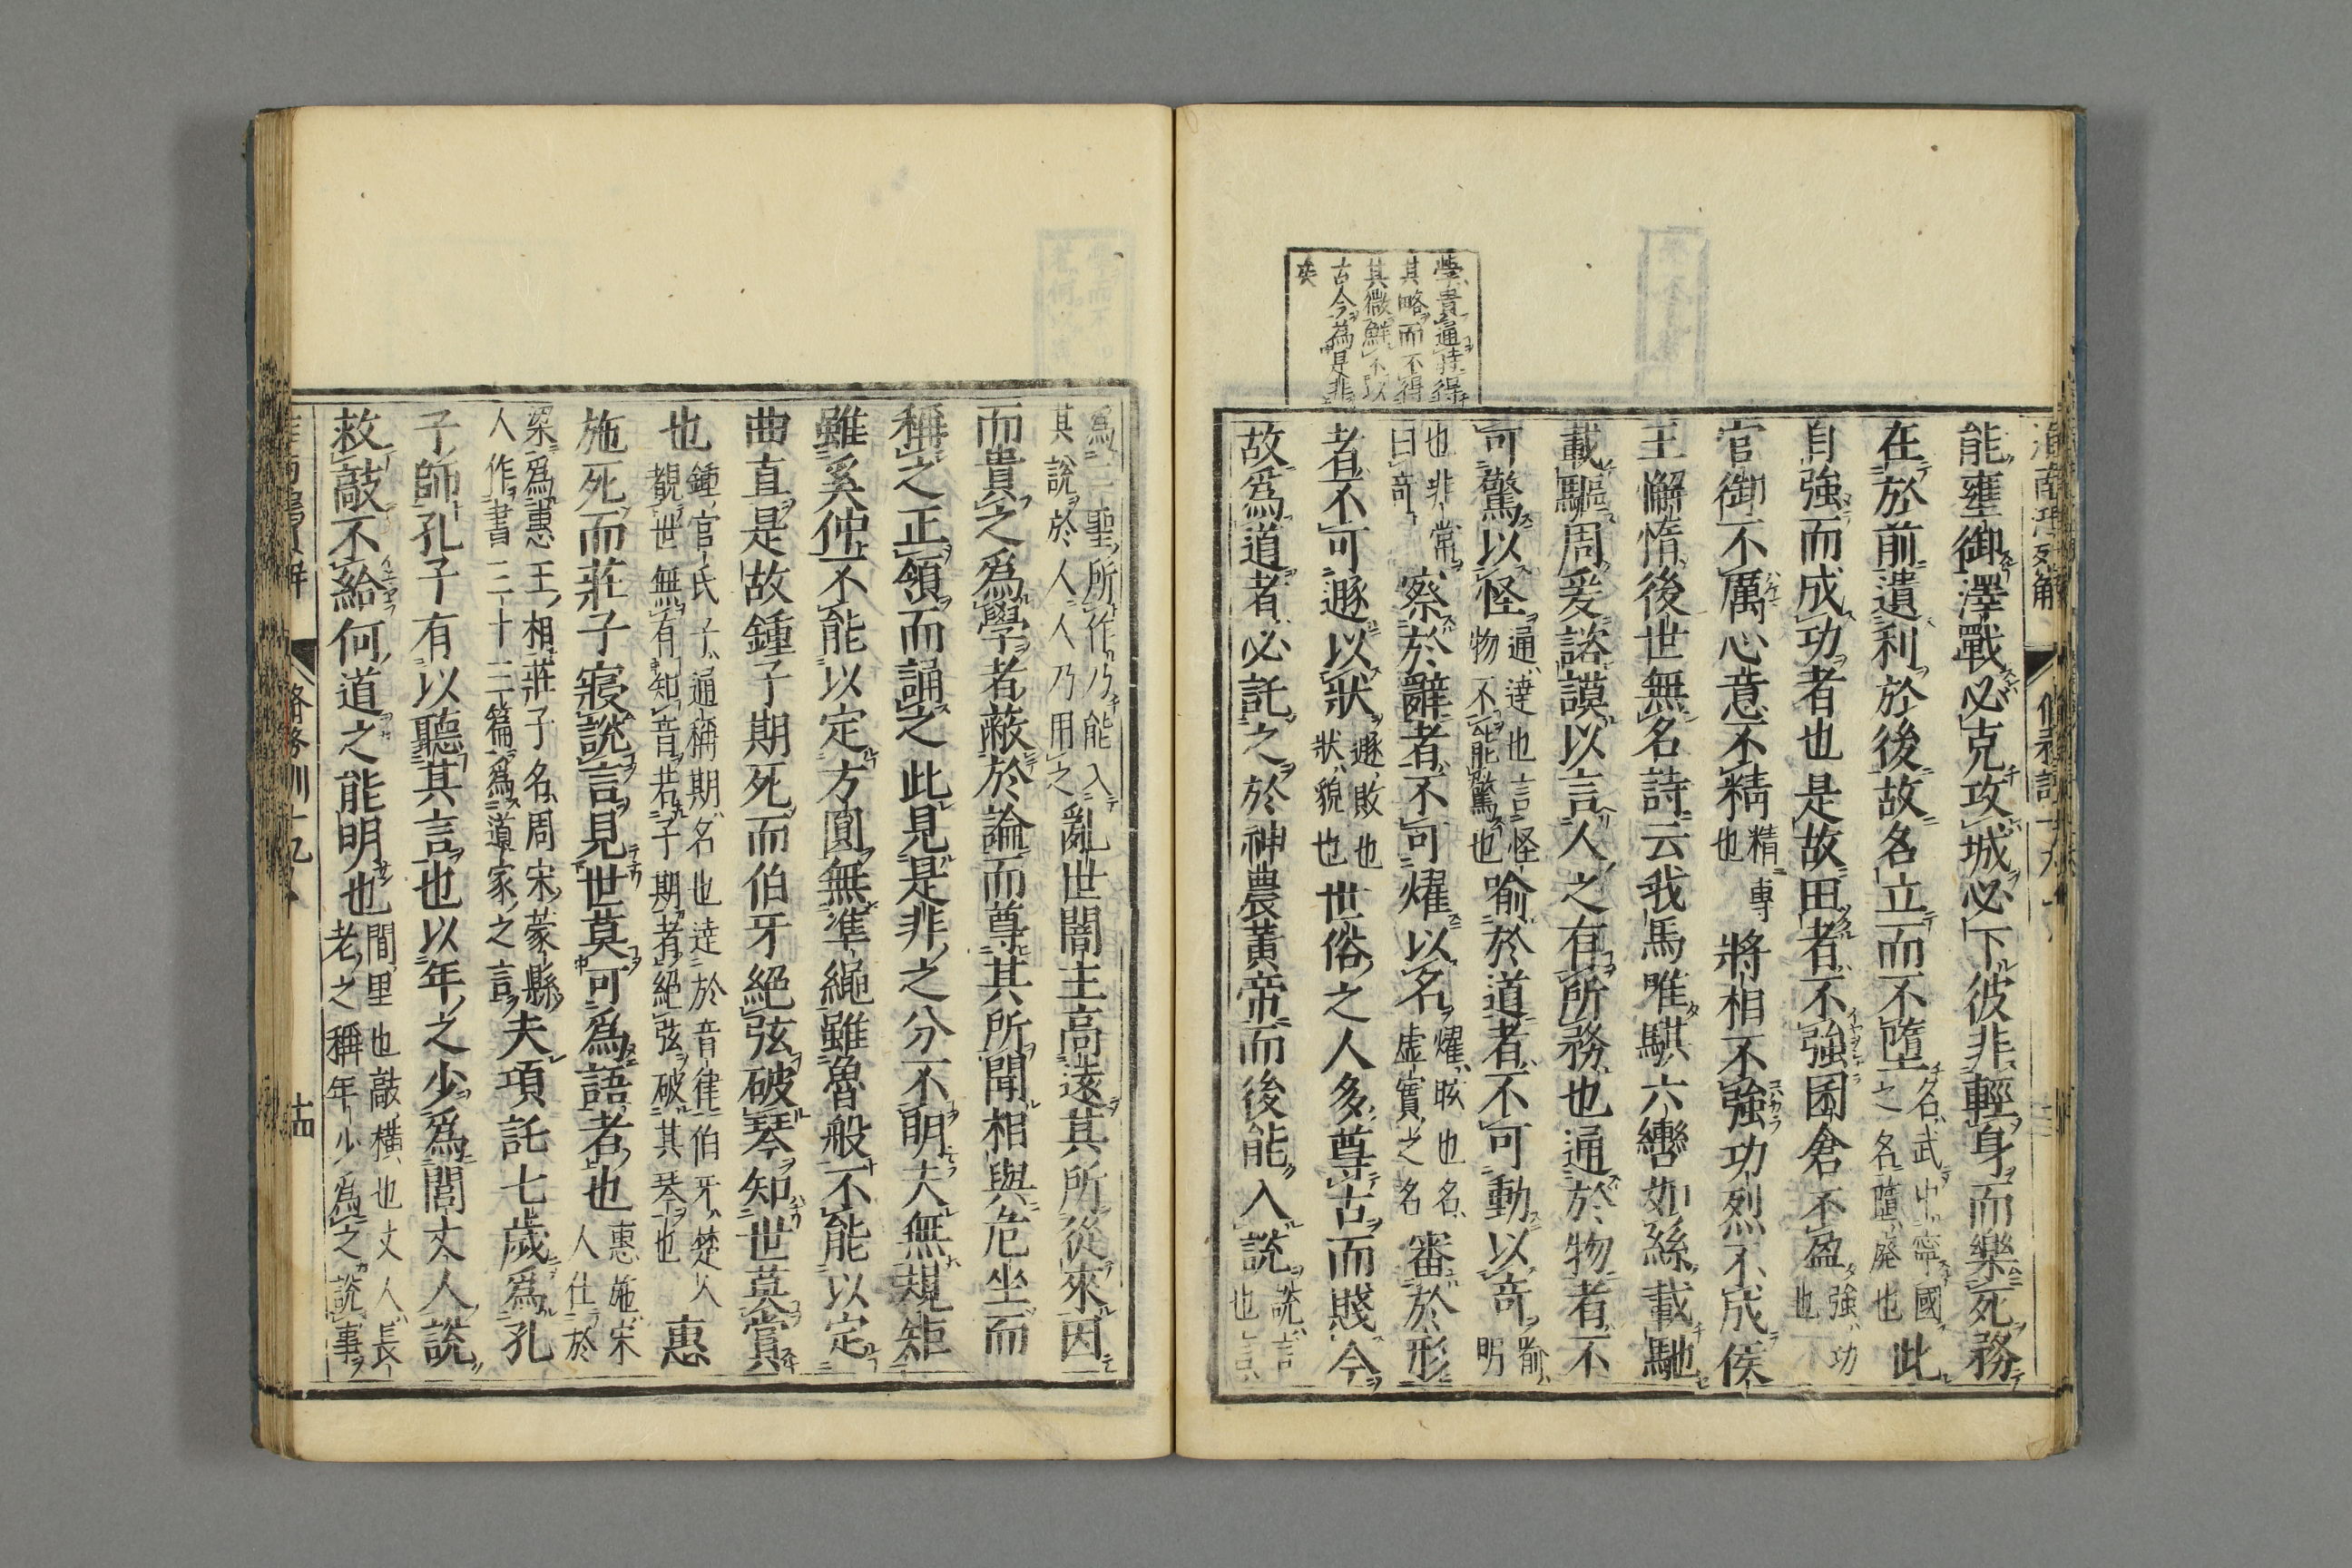 學書通詩得
其略而不得
其微鮮不以
古今爲是非
矣
能壅御澤戰必克攻城必下彼非輕身而樂死務
在於前遺利於後故名立而不墮名武中寧國之名墮廢也此
自強而成功者也是故田者不強囷倉不盈強功也
官御不厲心意不精精專也將相不強功烈不成侯
王懈惰後世無名詩云我馬唯騏六轡如絲載馳
載驅周爰諮謨以言人之有所務也通於物者不
可驚以怪通達也言怪物不能驚也喻於道者不可動以奇喻明
也非常曰奇察於辭者不可燿以名燿眩也名虛實之名審於形
者不可遯以狀遯敗也狀貌也世俗之人多尊古而賤今
故爲道者必託之於神農黃帝而後能入說說言也言
爲二聖所作乃能入其說於人人乃用之亂世闇主高遠其所從來因
而貴之爲學者蔽於論而尊其所聞相與危坐而
稱之正領而誦之此見是非之分不明夫無規矩
雖奚仲不能以定方圓無準繩雖魯般不能以定
曲直是故鍾子期死而伯牙絕弦破琴知世莫賞
也鍾官氏子通稱期名也達於音律伯牙楚人覩世無有知音若子期者絕弦破其琴也惠
施死而莊子寢說言見世莫可爲語者也惠施宋人仕於
梁爲惠王相莊子名周宋蒙縣人作書三十三篇爲道家之言夫項託七歲爲孔
子師孔子有以聽其言也以年之少爲閭丈人說
救敲不給何道之能明也閭里也敲橫也丈人長老之稱年少爲之說事
淮南鴻烈解 脩務訓十九 十四